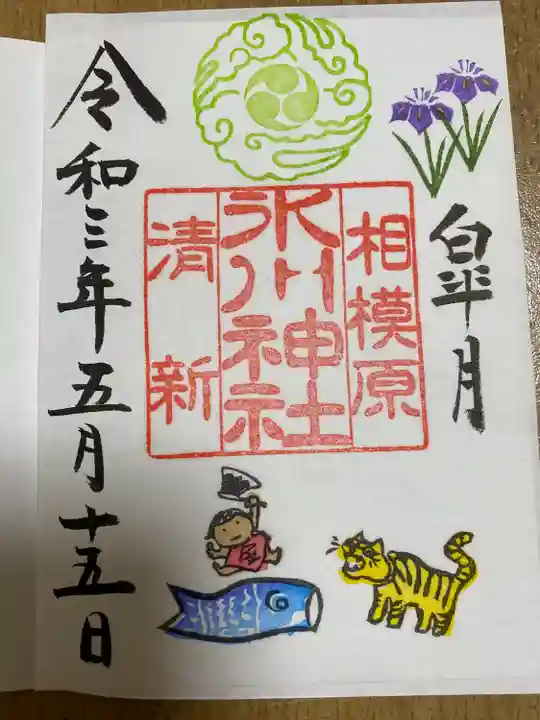 皐月
相模原
氷川神社
清新
令和三年五月十五日